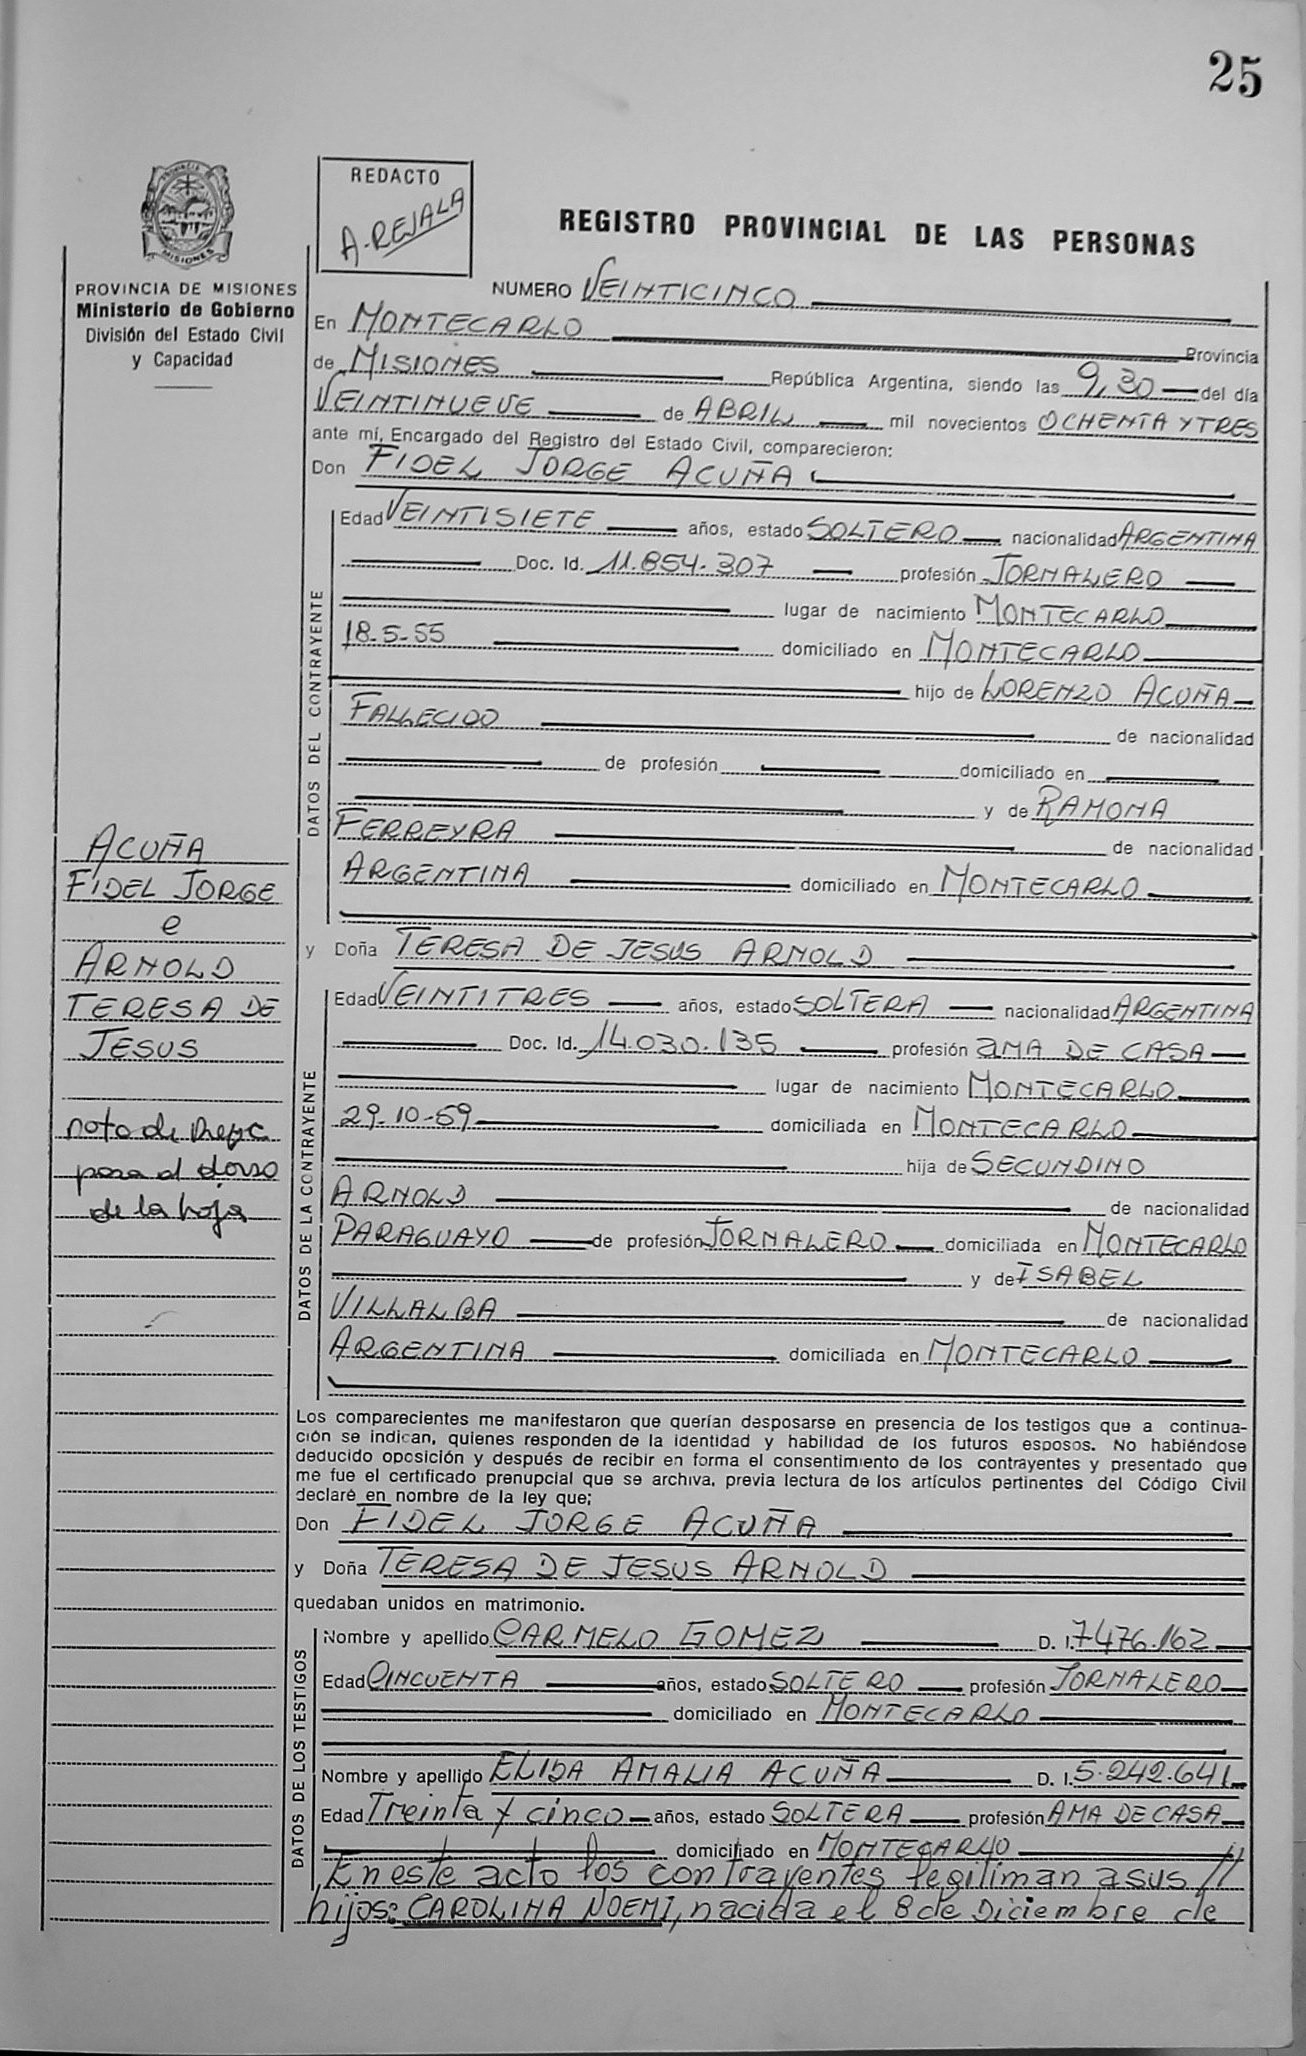 25
PROVINCIA
MISIONES
REDACTO
A. REJALA
REGISTRO PROVINCIAL DE LAS PERSONAS
PROVINCIA DE MISIONES
Ministerio de Gobierno
División del Estado Civil
y Capacidad
NUMERO VEINTICINCO
En MONTECARLO Provincia
de MISIONES República Argentina, siendo las 9,30 del día
VEINTINUEVE de ABRIL mil novecientos OCHENTA Y TRES
ante mí, Encargado del Registro del Estado Civil, comparecieron:
Don FIDEL JORGE ACUÑA
DATOS DEL CONTRAYENTE
Edad VEINTISIETE años, estado SOLTERO nacionalidad ARGENTINA
Doc. Id. 11.854.307 profesión JORNALERO
lugar de nacimiento MONTECARLO
18-5-55 domiciliado en MONTECARLO
hijo de LORENZO ACUÑA
FALLECIDO de nacionalidad
de profesión domiciliado en
y de RAMONA
FERREYRA de nacionalidad
ARGENTINA domiciliado en MONTECARLO
ACUÑA
FIDEL JORGE
e
ARNOLD
TERESA DE
JESUS
nota de
pasa al dorso
de la hoja
y Doña TERESA DE JESUS ARNOLD
DATOS DE LA CONTRAYENTE
Edad VEINTITRES años, estado SOLTERA nacionalidad ARGENTINA
Doc. Id. 14.030.135 profesión AMA DE CASA
lugar de nacimiento MONTECARLO
29-10-59 domiciliada en MONTECARLO
hija de SECUNDINO
ARNOLD de nacionalidad
PARAGUAYO de profesión JORNALERO domiciliada en MONTECARLO
y de ISABEL
VILLALBA de nacionalidad
ARGENTINA domiciliada en MONTECARLO
Los comparecientes me manifestaron que querían desposarse en presencia de los testigos que a continua-
ción se indican, quienes responden de la identidad y habilidad de los futuros esposos. No habiéndose
deducido oposición y después de recibir en forma el consentimiento de los contrayentes y presentado que
me fue el certificado prenupcial que se archiva, previa lectura de los artículos pertinentes del Código Civil
declaré en nombre de la ley que;
Don FIDEL JORGE ACUÑA
y Doña TERESA DE JESUS ARNOLD
quedaban unidos en matrimonio.
DATOS DE LOS TESTIGOS
Nombre y apellido CARMELO GOMEZ D. I. 7476.162
Edad CINCUENTA años, estado SOLTERO profesión JORNALERO
domiciliado en MONTECARLO
Nombre y apellido ELISA AMALIA ACUÑA D. I. 5.242.641
Edad Treinta y cinco años, estado SOLTERA profesión AMA DE CASA
domiciliado en MONTECARLO
En este acto los contrayentes legitiman a sus //
hijos: CAROLINA NOEMI, nacida el 8 de Diciembre de